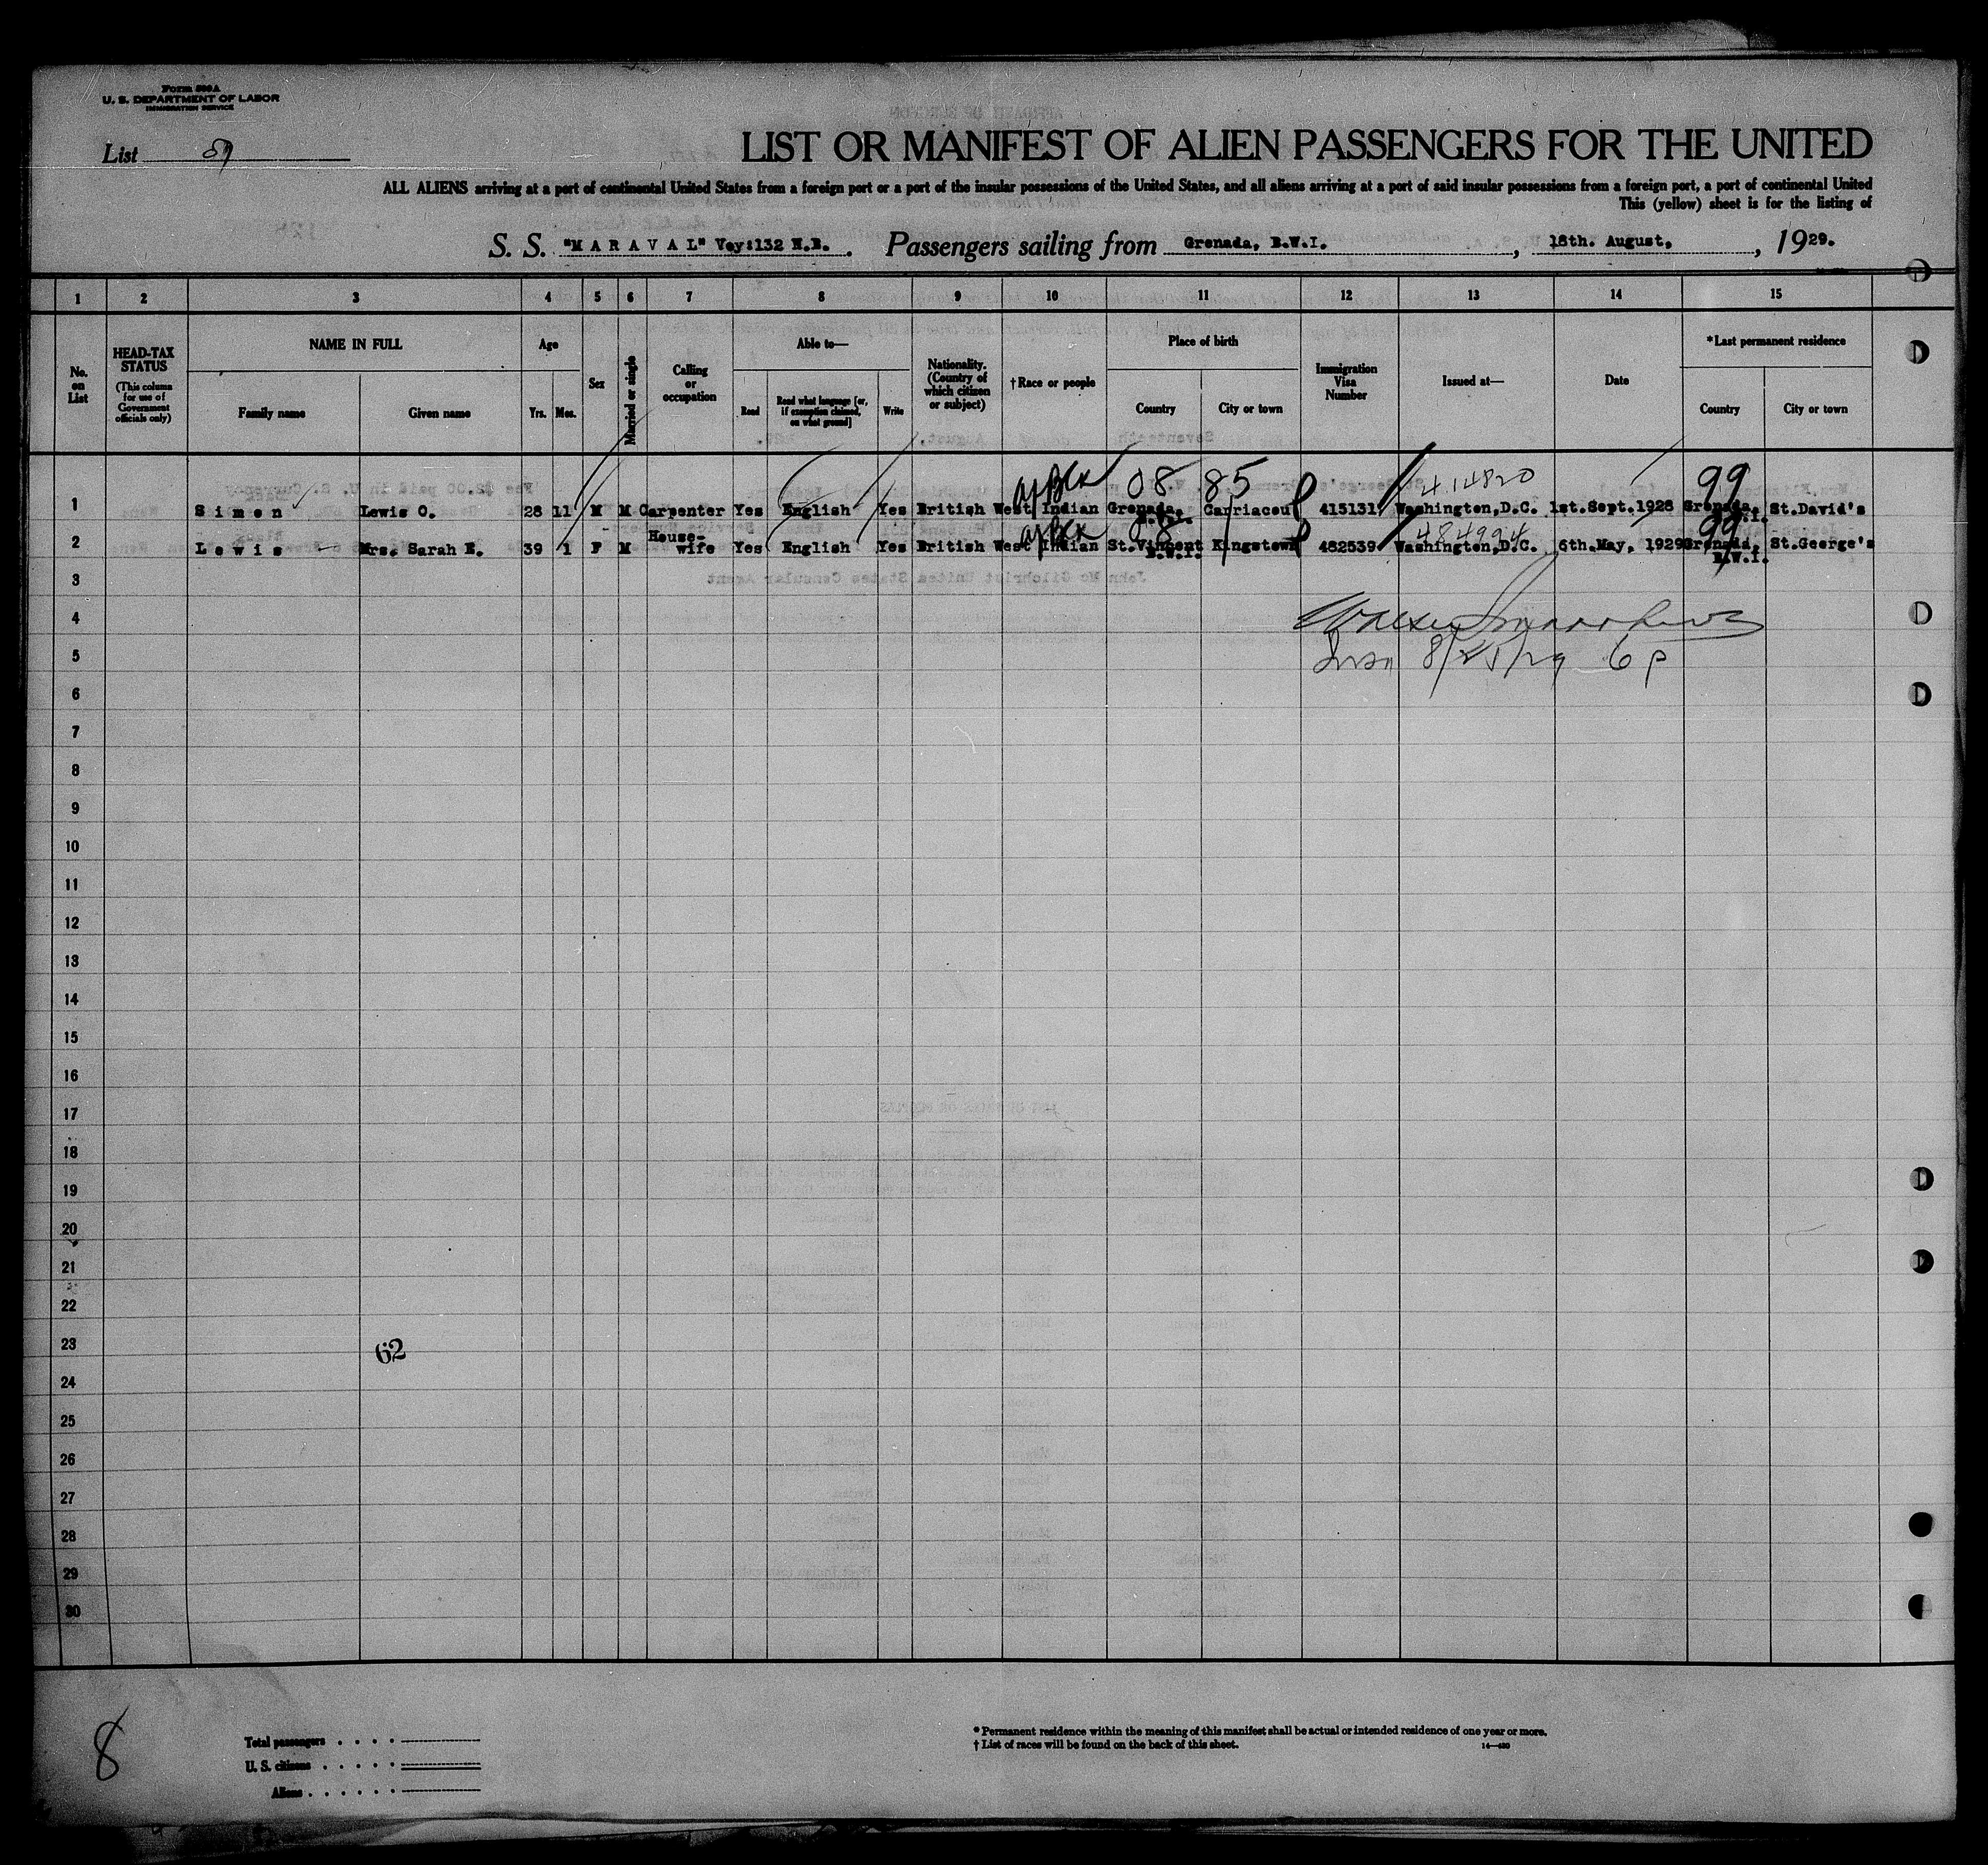 Form 500A
U. S. DEPARTMENT OF LABOR
IMMIGRATION SERVICE
List
LIST OR MANIFEST OF ALIEN PASSENGERS FOR THE UNITED
ALL ALIENS arriving at a port of continental United States from a foreign port or a port of the insular possessions of the United States, and all aliens arriving at a port of said insular possessions from a foreign port, a port of continental United
This (yellow) sheet is for the listing of
S. S. "M A R A V A L" Voy:132 N.B. Passengers sailing from Grenada, B.W.I. , 18th. August. , 1929.
1 2 3 4 5 6 7 8 9 10 11 12 13 14 15
No. on List
HEAD-TAX STATUS (This column for use of Government officials only)
NAME IN FULL
Family name Given name
Age
Yrs. Mos.
Sex
Married or single
Calling or occupation
Able to—
Read Read what language [or, if exemption claimed, on what ground] Write
Nationality. (Country of which citizen or subject)
†Race or people
Place of birth
Country City or town
Immigration Visa Number
Issued at—
Date
*Last permanent residence
Country City or town
08 85 414820 99
1 S i m o n Lewis O. 28 11 M M Carpenter Yes English Yes British West Indian Grenada, B.W.I. Carriacou 415131 Washington,D.C. 1st.Sept.1928 Grenada, B.W.I. St.David's
08 484994 99
2 L e w i s Mrs. Sarah E. 39 1 F M House-wife Yes English Yes British West Indian St.Vincent B.W.I. Kingstown 482539 Washington,D.C. 6th.May, 1929 Grenada, B.W.I. St.George's
3
4
5 8/25/29 6 P
6
7
8
9
10
11
12
13
14
15
16
17
18
19
20
21
22
23 62
24
25
26
27
28
29
30
8
Total passengers . . . .
U. S. citizens . . . . .
Aliens . . . . . .
* Permanent residence within the meaning of this manifest shall be actual or intended residence of one year or more.
† List of races will be found on the back of this sheet.
14—430